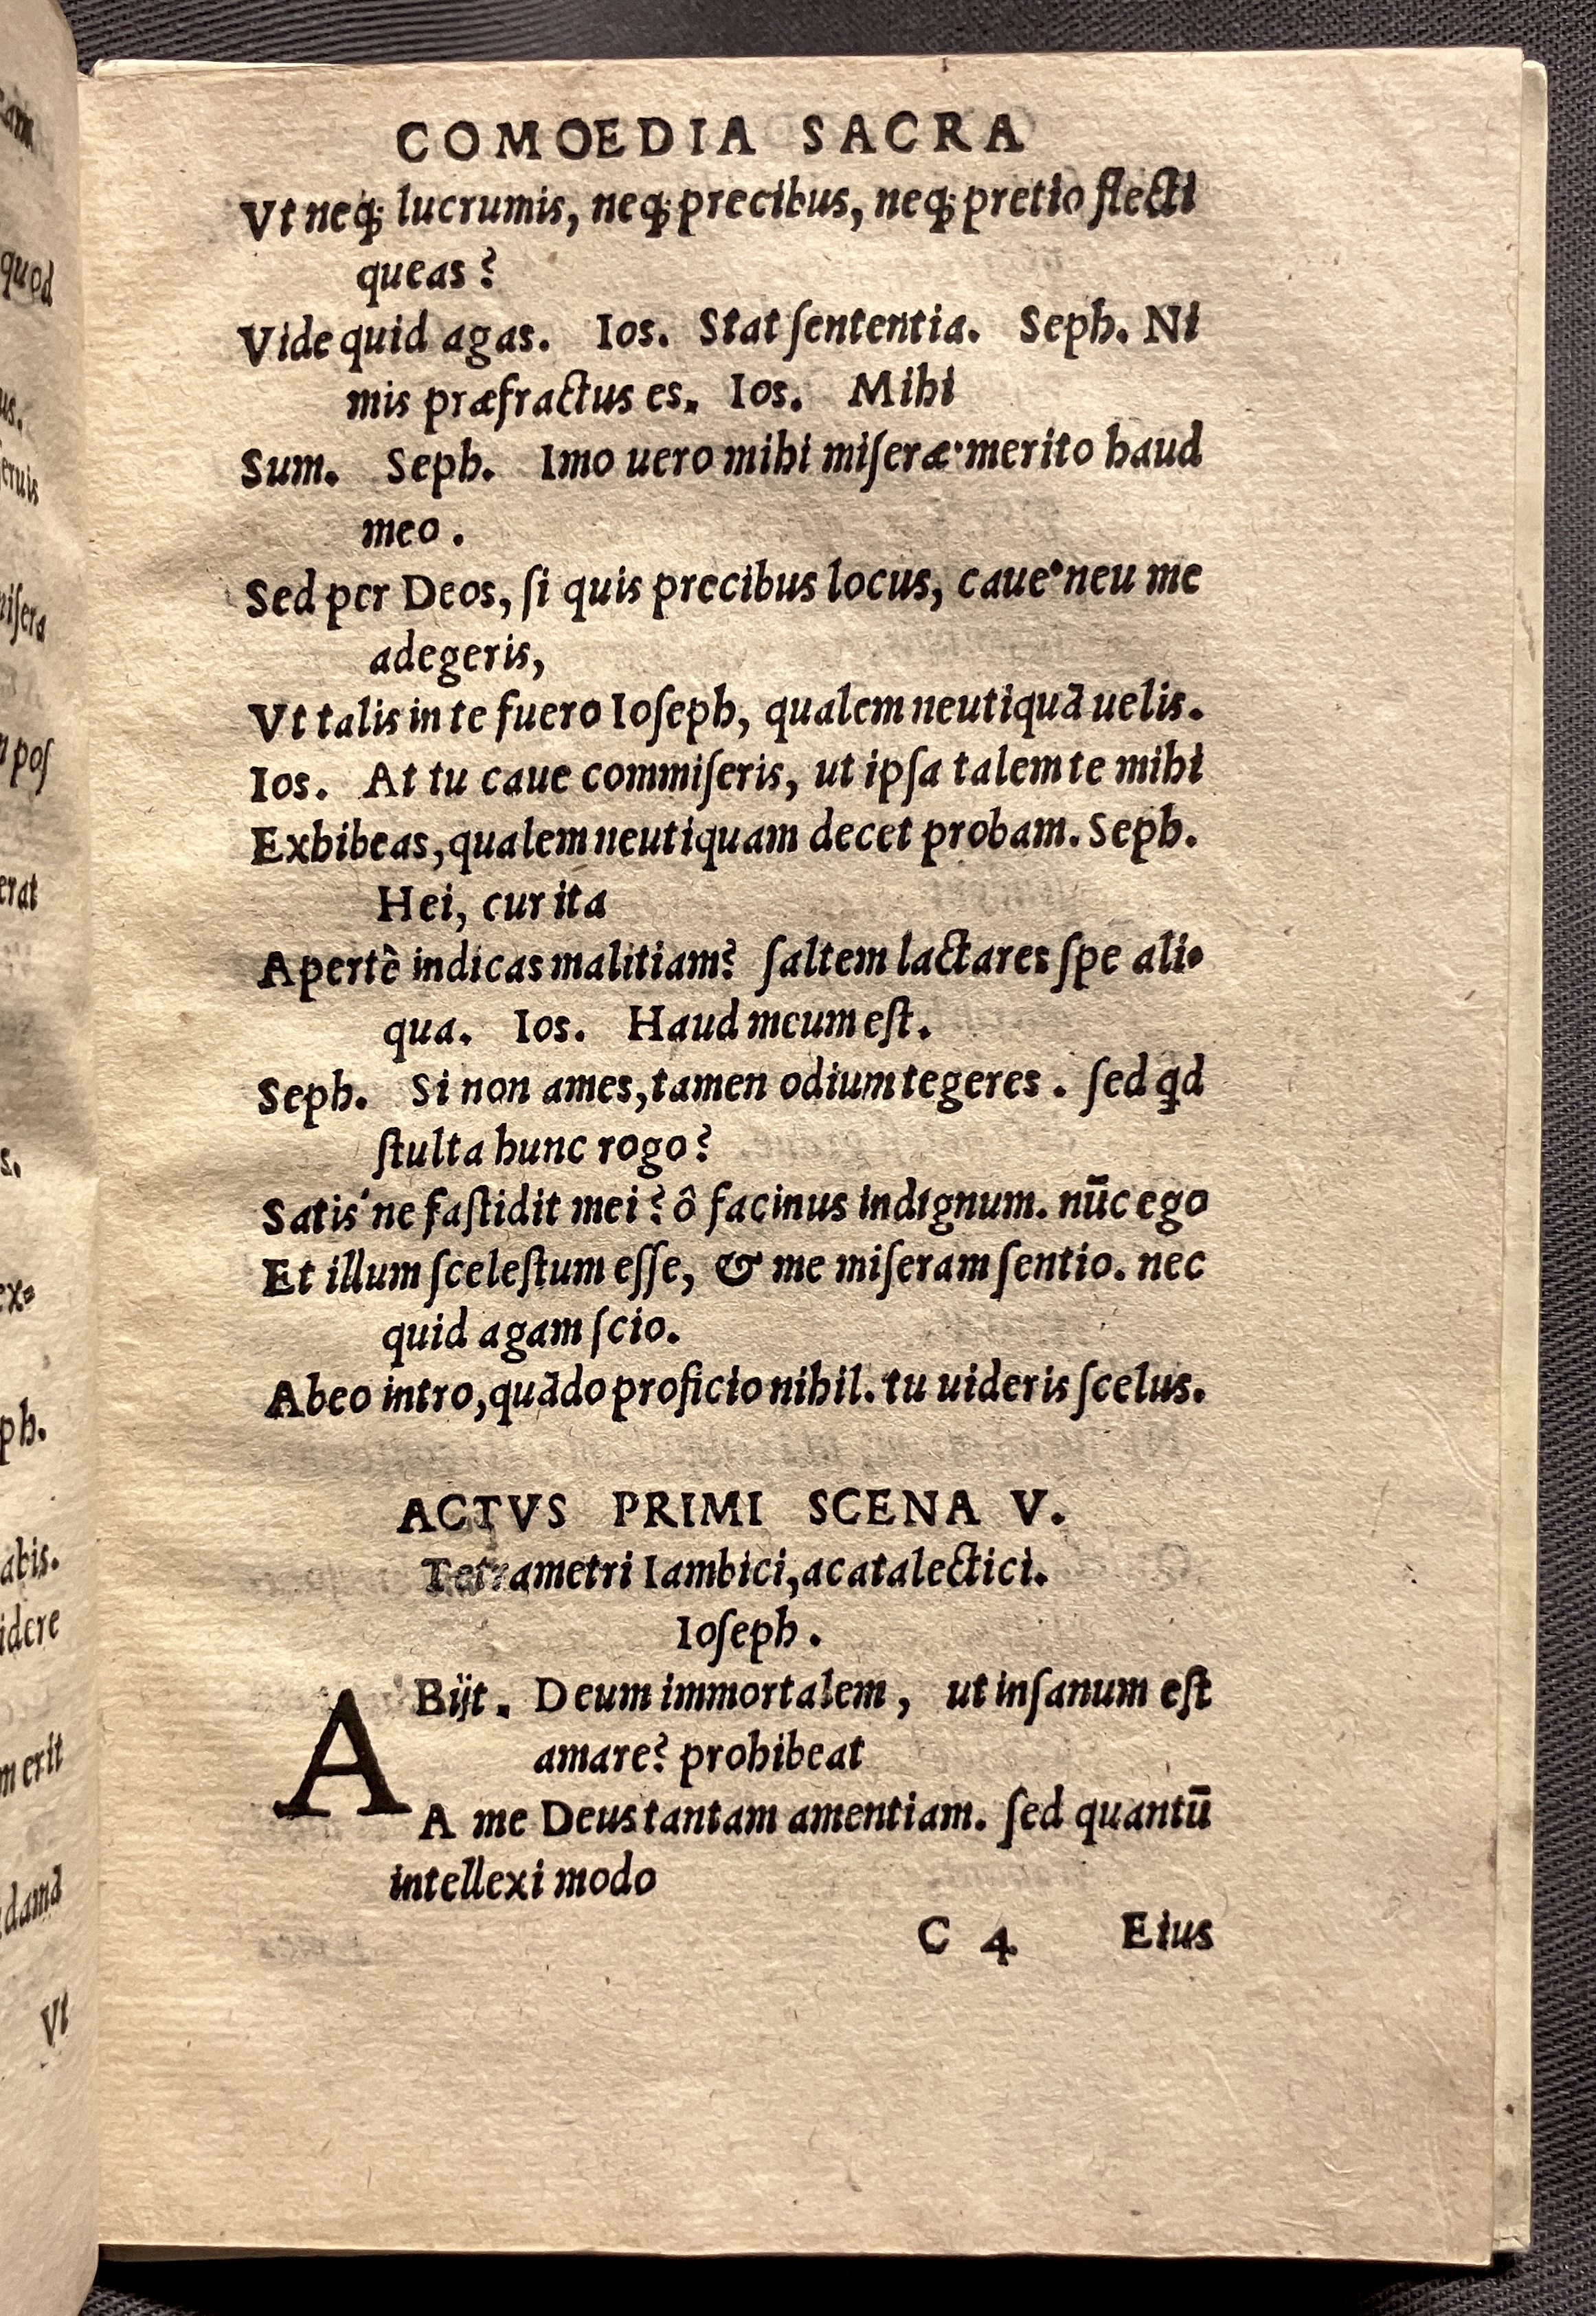 COMOEDIA SACRA
Vt neq; lucrumis, neq; precibus, neq; pretio flecti
queas?
Vide quid agas. Ios. Stat ſententia. Seph. Ni
mis præfractus es. Ios. Mihi
Sum. Seph. Imo uero mihi miſeræ· merito haud
meo.
Sed per Deos, ſi quis precibus locus, caue· neu me
adegeris,
Vt talis in te fuero Ioſeph, qualem neutiquā uelis.
Ios. At tu caue commiſeris, ut ipſa talem te mihi
Exhibeas, qualem neutiquam decet probam. Seph.
Hei, cur ita
Apertê indicas malitiam? ſaltem lactares ſpe ali-
qua. Ios. Haud meum eſt.
Seph. Si non ames, tamen odium tegeres. ſed qd
ſtulta hunc rogo?
Satis' ne faſtidit mei? ô facinus indignum. nūc ego
Et illum ſceleſtum eſſe, & me miſeram ſentio. nec
quid agam ſcio.
Abeo intro, quādo proficio nihil. tu uideris ſcelus.
ACTVS PRIMI SCENA V.
Tetrametri Iambici, acatalectici.
Ioſeph.
ABijt. Deum immortalem, ut inſanum eſt
amare? prohibeat
A me Deus tantam amentiam. ſed quantū
intellexi modo
C 4 Eius
quod
us.
miſera
poſ
erat
s.
ex-
ph.
idere
erit
Vt